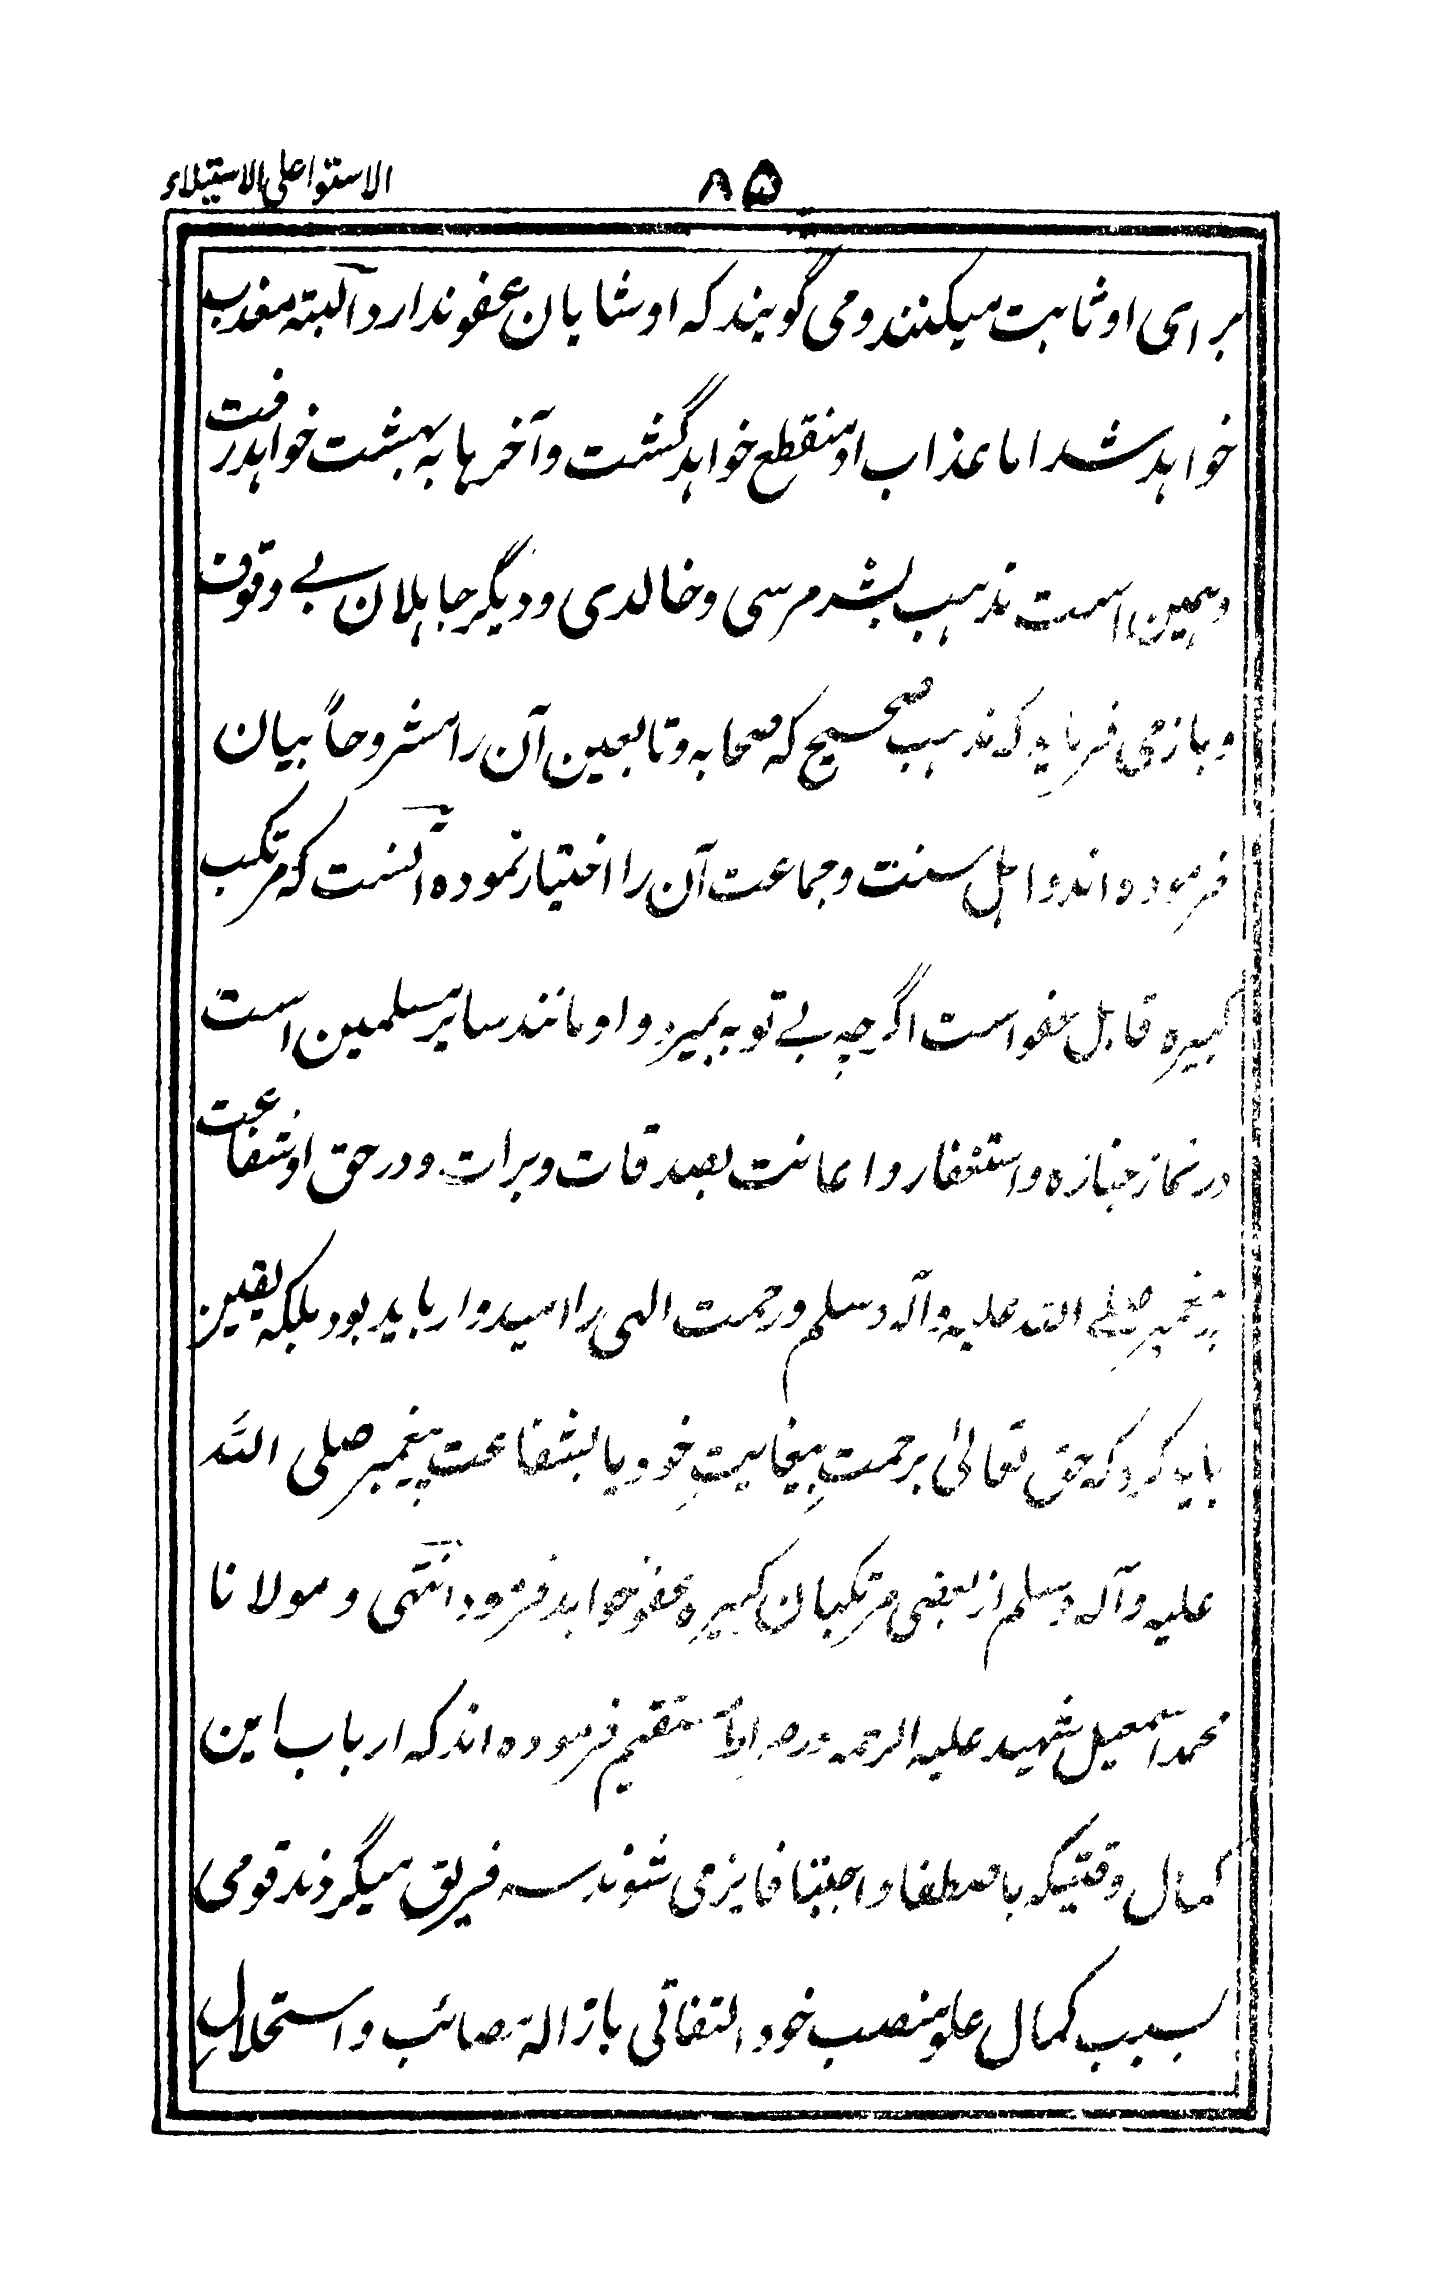 ۸۵
الاستوا علی الاستیلاء
برای او ثابت میکنند و می گویند که او شایان عفو ندارد آلبته معذب
خواهد شد اما عذاب او منقطع خواهد گشت و آخرها به بهشت خواهد رفت
و همین است مذهب بشر مرسی و خالدی و دیگر جاهلان بے وقوف
و باز می فرماید که مذهب صحیح که صحابه و تابعین آن را مشروحاً بیان
فرموده اند و اهل سنت و جماعت آن را اختیار نموده آنست که مرتکب
کبیره قابل عفو است اگرچه بے توبه بمیرد و او مانند سایر مسلمین است
در نماز جنازه و استغفار و اعانت بصدقات و برات و در حق او شفاعت
پیغمبر صلے الله علیه وآله وسلم و رحمت الهی را امیدوار باید بود بلکه یقین
باید کرد که حق تعالیٰ برحمتِ بیغایتِ خود یا بشفاعت پیغمبر صلی الله
علیه وآله وسلم از بعضی مرتکبان کبیره عفو خواهد فرمود انتهی و مولانا
محمد اسمعیل شهید علیه الرحمه در صراط مستقیم فرموده اند که ارباب این
کمال وقتیکه باصطفا و اجتبا فایز می شوند سه فریق میگردند قومی
بسبب کمال علو منصب خود التفاتی بازاله مصائب و استحلالِ